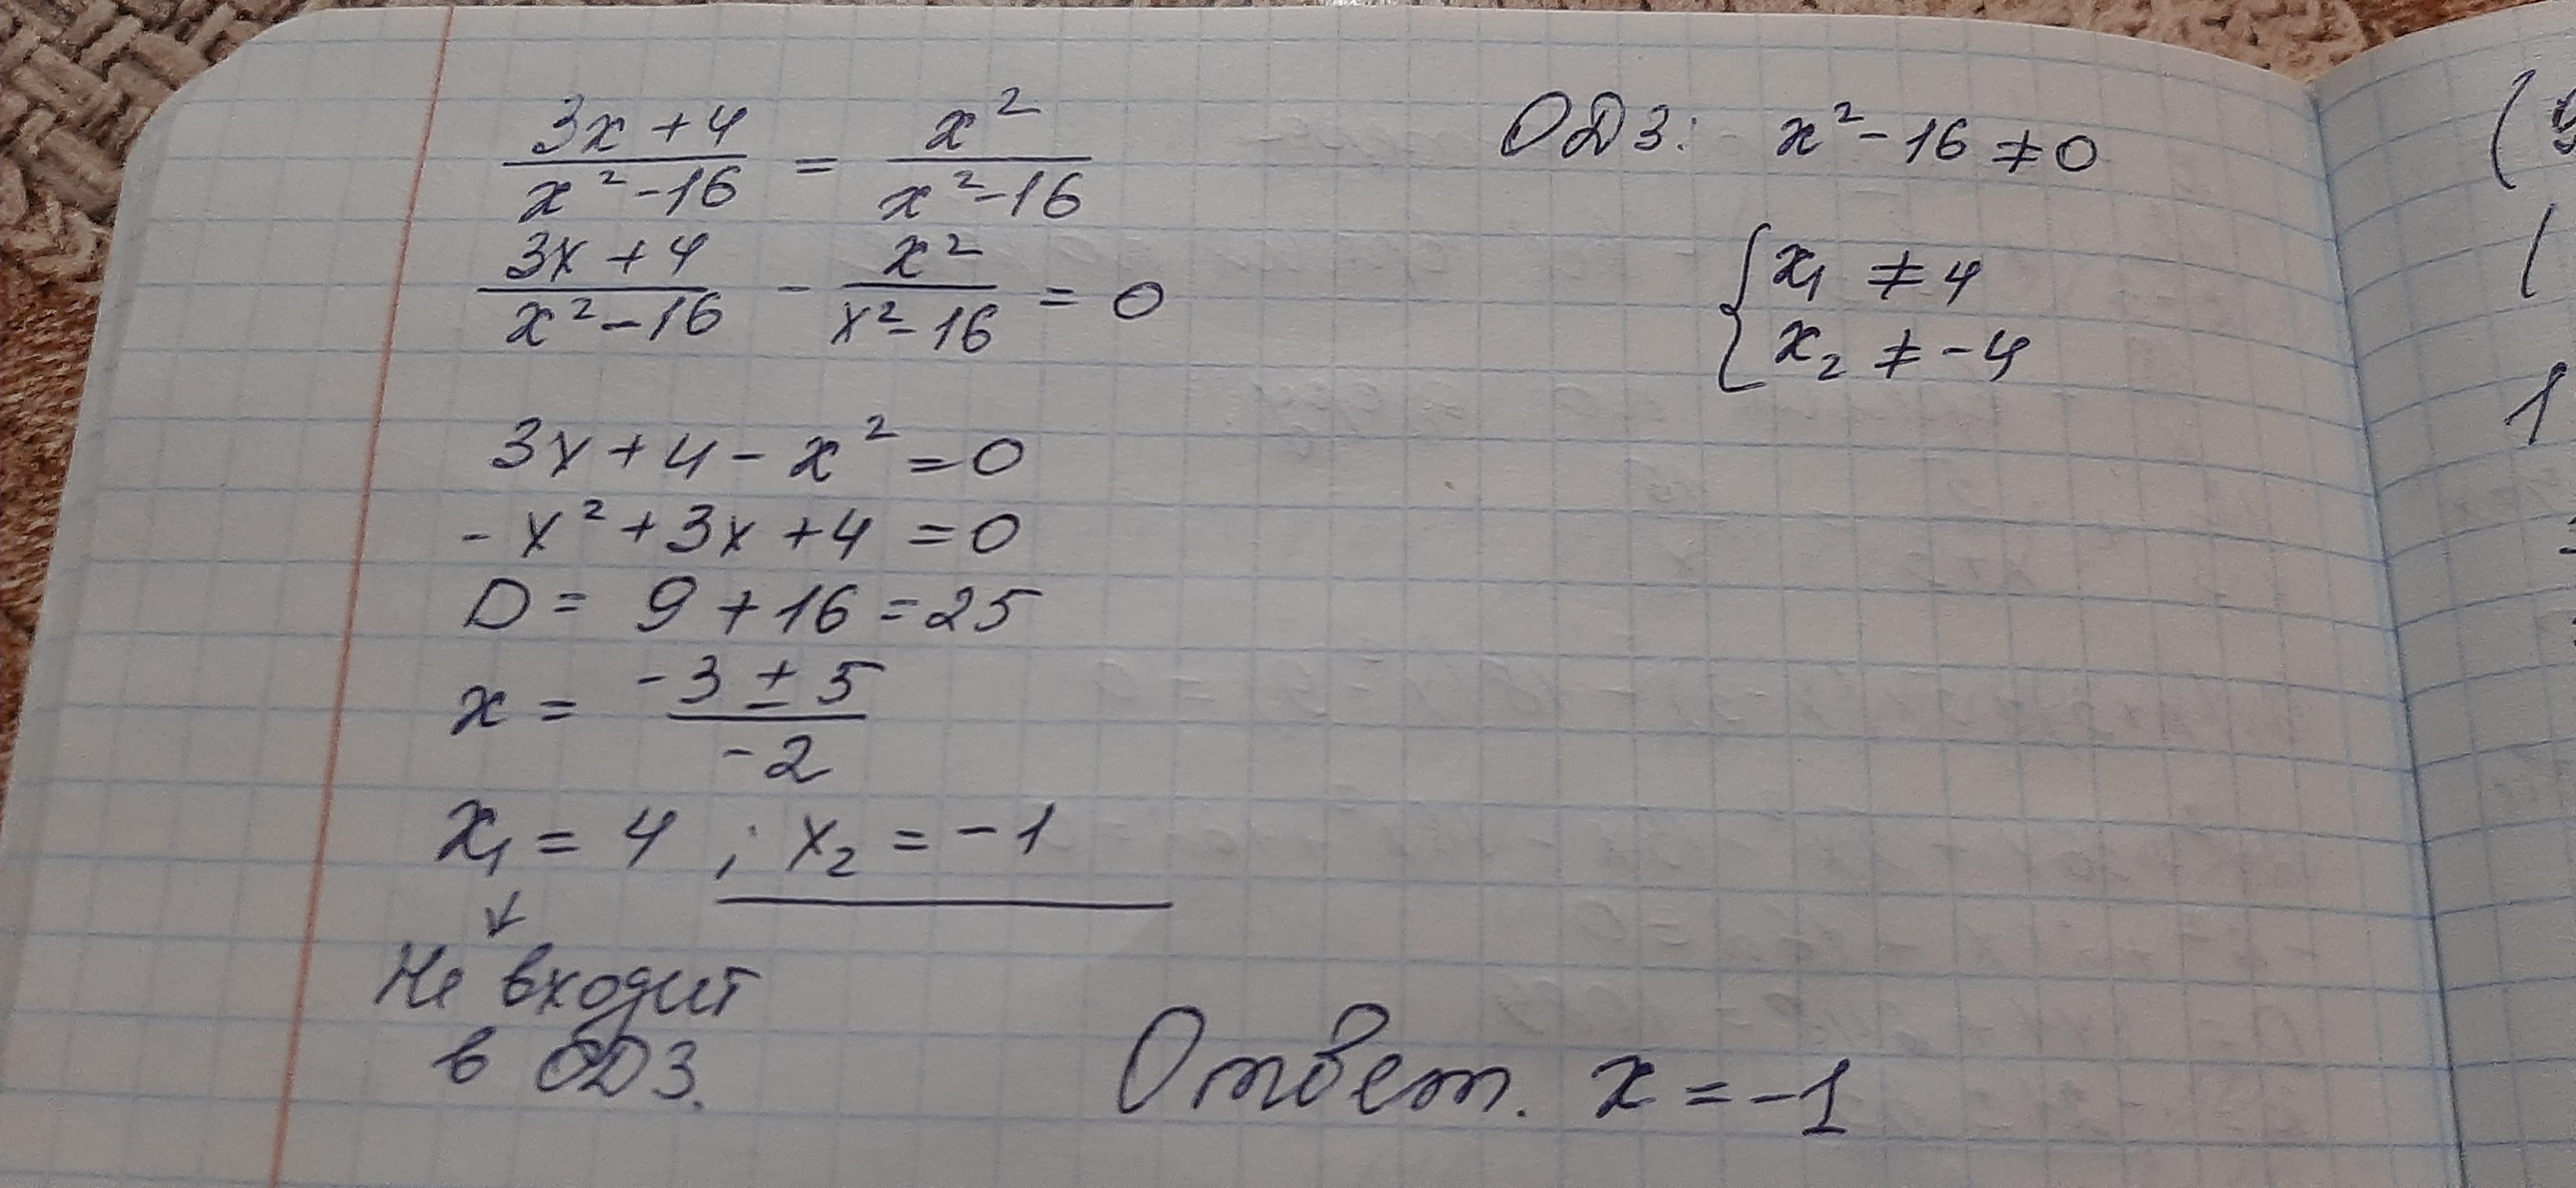 (3x + 4)/(x² - 16) = x²/(x² - 16)
(3x + 4)/(x² - 16) - x²/(x² - 16) = 0
3x + 4 - x² = 0
- x² + 3x + 4 = 0
D = 9 + 16 = 25
x = (-3 ± 5)/(-2)
x₁ = 4 ; x₂ = -1
Не входит
в ОДЗ.
ОДЗ: x² - 16 ≠ 0
{ x₁ ≠ 4
x₂ ≠ -4
Ответ. x = -1